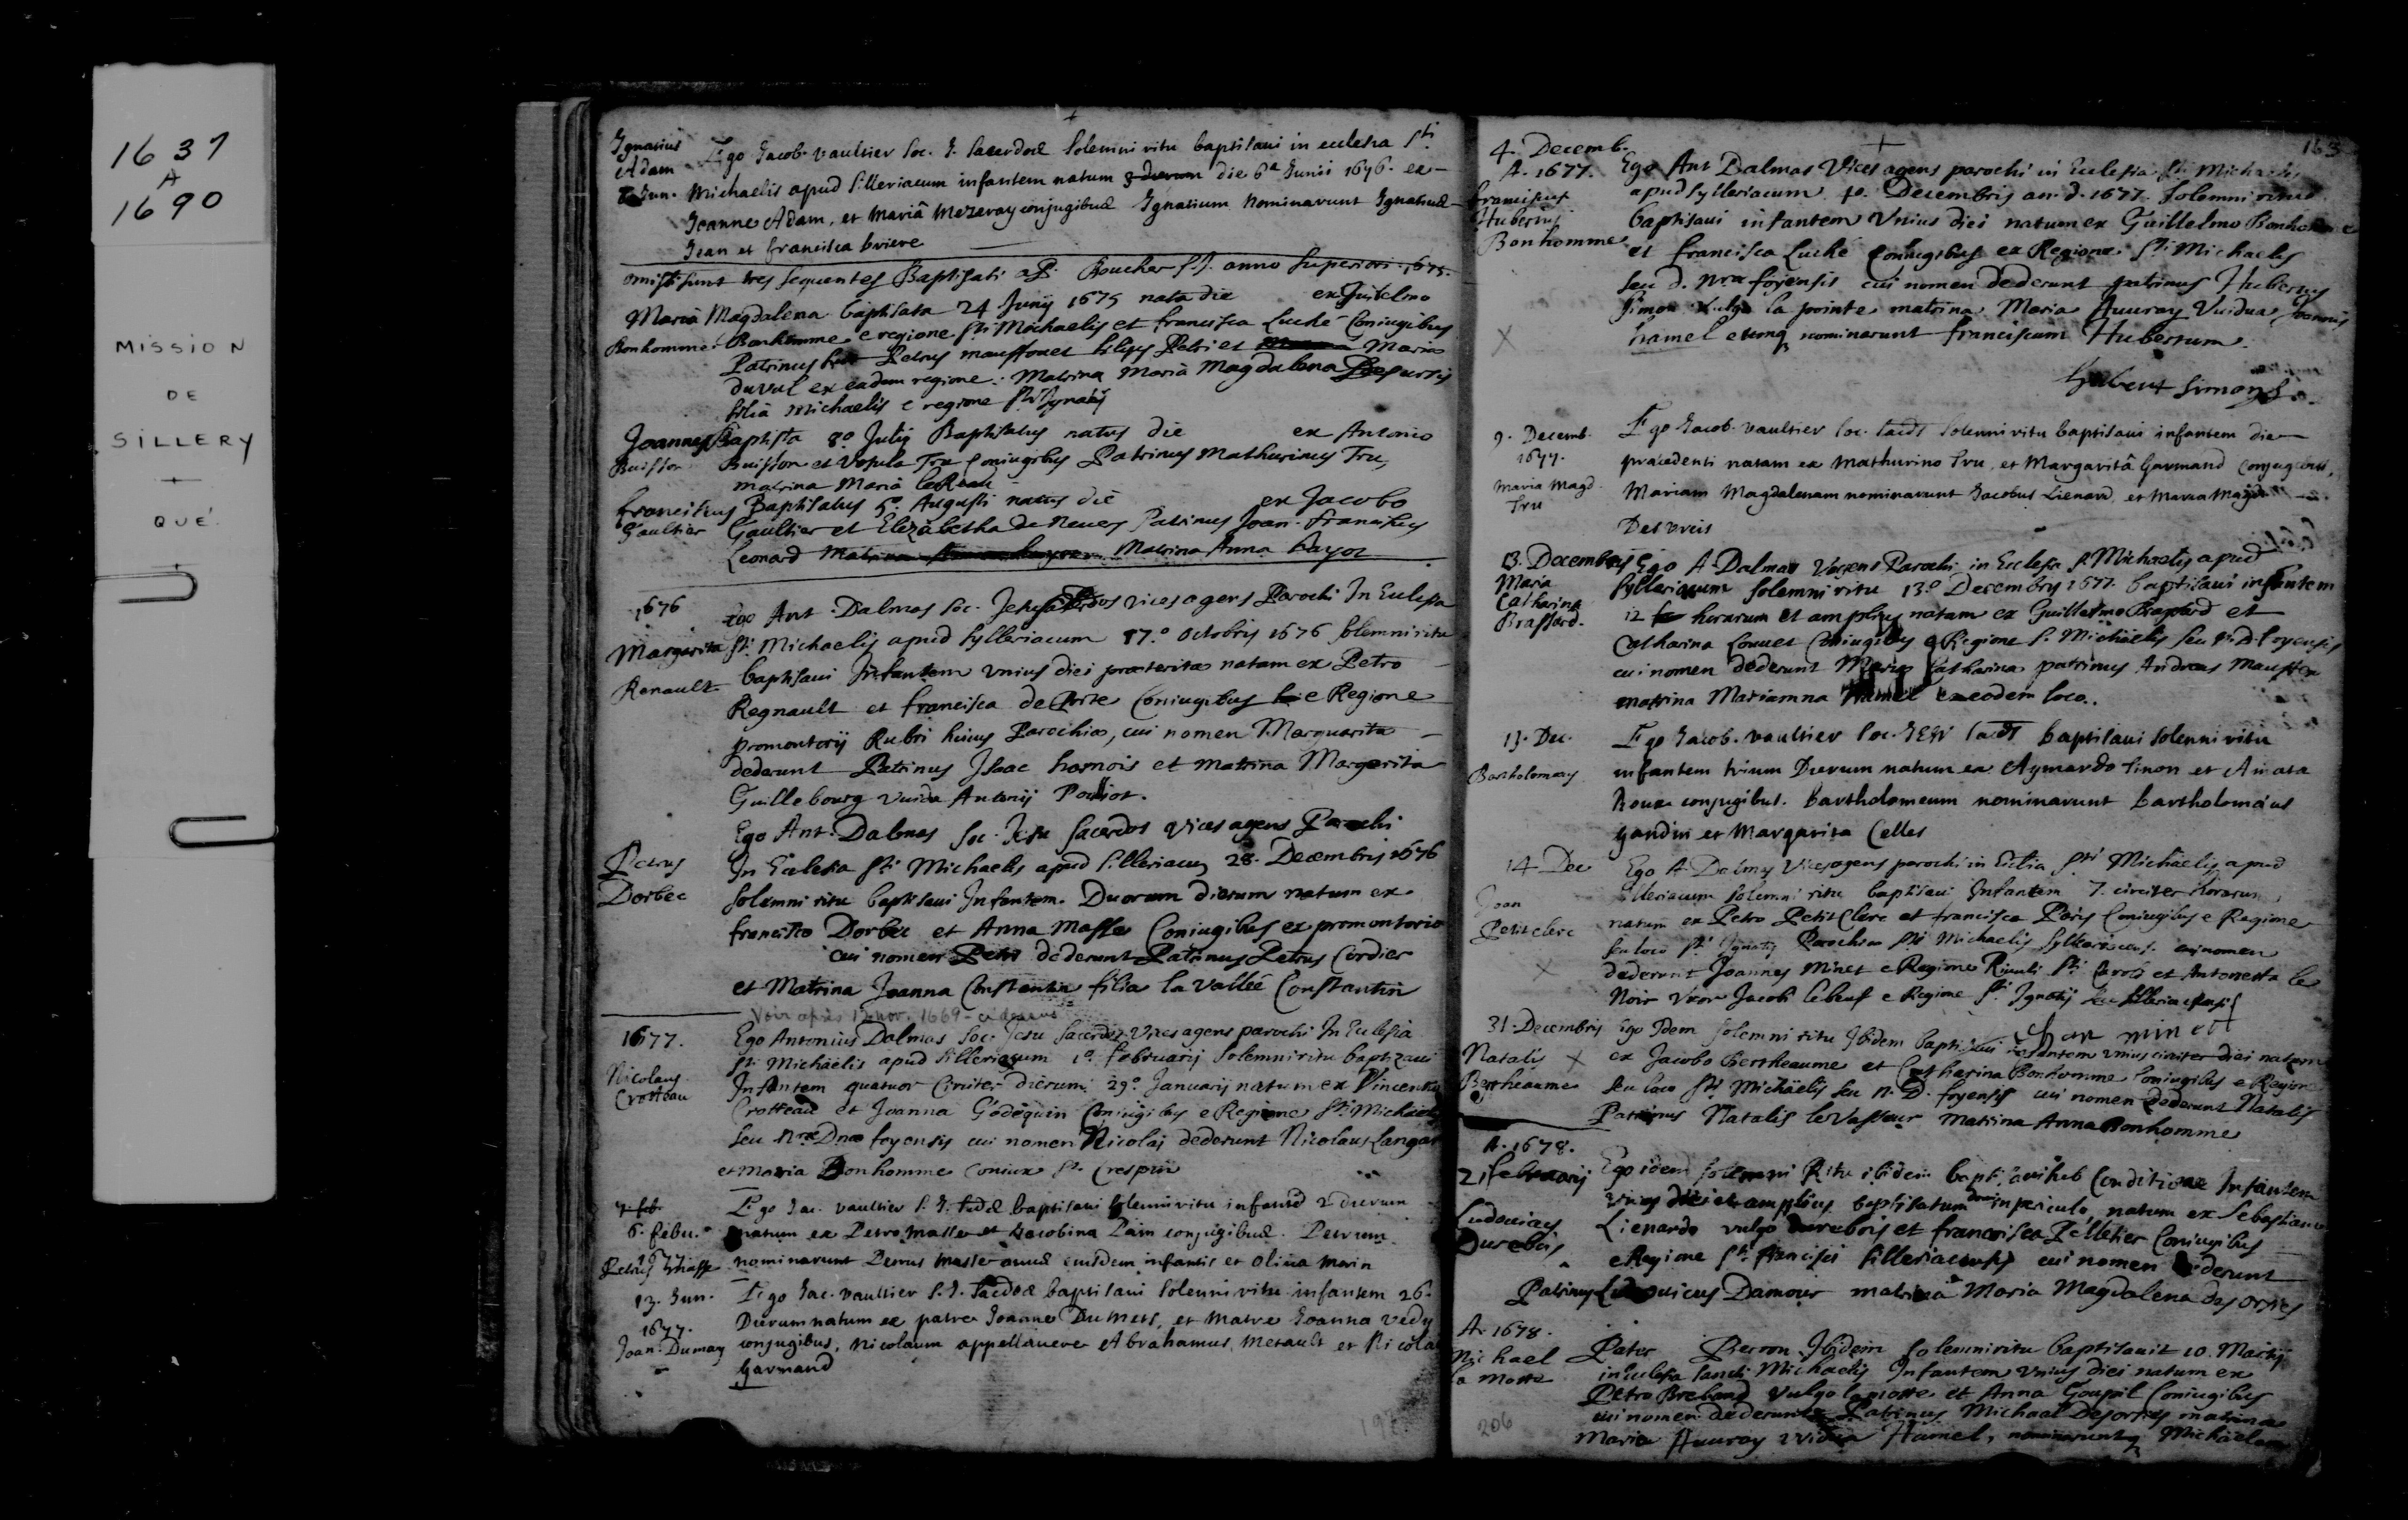 1637
A
1690
MISSION
DE
SILLERY
QUÉ.
Ignatius
Adam
Jun.
Ego Jacob. vaultier soc. J. sacerdos solemni ritu baptisavi in ecclesia sti
Michaelis apud silleriacum infantem natum die 6a Junii 1676. ex
Joanne Adam, et Mariâ Mezeray conjugibus Ignatium nominarunt Ignatius
Jean et francisca briere
omissi sunt tres sequentes Baptisati a P. Boucher s.J. anno superiori 1675.
Maria Magdalena baptisata 24 Junij 1675 nata die ex Guilelmo
Bonhomme Bonhomme e regione sti Michaelis et francisca Luché Coniugibus
Patrinus Petrus mauffouet filius Petri et Maria
duval ex eadem regione. Matrina Maria Magdalena
filia Michaelis e regione sti Ignatij
Joannes Baptista 8o Julij Baptisatus natus die ex Antonio
Buisson Buisson et Vrsula Tru Coniugibus Patrinus Mathurinus Tru,
matrina Maria
franciscus Baptisatus 5o. Augusti natus die ex Jacobo
Gaultier Gaultier et Elizabetha de Neues Patrinus Joan. franciscus
Leonard Matrina Anna bayoz
1676
Margarita
Renault
Ego Ant. Dalmas soc. Jesu sacerdos vices agens Parochi In Eclesia
sti Michaelis apud sylleriacum 17.o octobris 1676 solemni ritu
baptisaui Infantem vnius diei praeteritae natam ex Petro
Regnault et francisca de Coniugibus e Regione
promontorij Rubri huius Parochiae, cui nomen Marguarita
dederunt Patrinus Isaac harnois et matrina Margarita
Guillebourg vuida Antonij Pouliot.
Petrus
Dorbec
Ego Ant. Dalmas soc. Jesu sacerdos vices agens Parochi
In Eclesia sti Michaelis apud silleriacum 28. Decembris 1676
solemni ritu baptisaui Infantem. Duorum dierum natum ex
francisco Dorbec et Anna Masse Coniugibus ex promontorio
cui nomen Petri dederunt Patrinus Petrus Cordier
et Matrina Joanna Constantin filia la Vallée Constantin
Voir après 12 nov. 1669 - ci-dessus
1677.
Nicolaus
Crotteau
Ego Antonius Dalmas soc. Jesu sacerdos vices agens parochi In Eclesia
sti Michaëlis apud silleriacum 1o. februarij solemni ritu baptizaui
Infantem quatuor Circiter dierum 29o. Januarij natum ex Vincentio
Crotteau et Joanna Godequin Coniugibus e Regione sti Michaëlis
seu nrae Dnae foyensis cui nomen Nicolaj dederunt Nicolaus Langar
et maria Bonhomme coniux st. Crespin
6. febru.
1677
Petrus Masse
Ego Jac. vaultier s. J. baptisavi solemni ritu infantem 2 dierum
natum ex Petro Masse et Jacobina Pain conjugibus. Petrum
nominarunt Petrus Masse avus eiusdem infantis et Oliva Morin
13. Jun.
1677.
Joan. Dumay
Ego Jac. vaultier s. J. baptisavi solemni ritu infantem 26.
Dierum natum ex patre Joanne Dumets, et matre Joanna vedy
conjugibus, Nicolaum appellavere Abrahamus Metault et Nicola
Garmand
197
163
4. Decemb.
A. 1677.
franciscus
Hubertus
Bonhomme
Ego Ant Dalmas Vices agens parochi in Eclesia sti Michaelis
apud sylleriacum 4o. Decembris an. d. 1677. solemni ritu
baptisaui infantem Vnius diei natum ex Guillelmo Bonhomme
et francisca Luché Coniugibus ex Regione sti Michaelis
seu d. nrae foyensis cui nomen dederunt patrinus Hubertus
simon vulgo la pointe matrina Maria Auuray Vuidua Joannis
hamel eumq nominarunt franciscum Hubertum.
hubert simong
9. Decemb.
1677.
Maria Magd.
Tru
Ego Jacob. vaultier soc. solenni ritu baptisavi infantem die
praecedenti natam ex Mathurino Tru, et Margaritâ Garmand conjugibus,
Mariam Magdalenam nominarunt Jacobus Lienard, et Maria Magd.
13. Decembris
Maria
Catharina
Brassard.
Ego A Dalmas Parochi in Eclesia s. Michaelis apud
sylleriacum solemni ritu 13o Decembris 1677. baptisaui infantem
12 horarum et amplius natam ex Guillelmo Brassard et
Catharina Louuet Coniugibus e Regione s. Michaelis seu n. d. foyensis
cui nomen dederunt Maria Catharina patrinus Andreas
matrina Mariamna hamel ex eodem loco.
13. Dec.
Bartholomaeus
Ego Jacob. vaultier soc. baptisavi solenni ritu
infantem trium Dierum natum ex Aymardo Tinon et Amata
Roux conjugibus. Bartholomeum nominarunt Bartholomaeus
Gandin et Margarita Celles
14 Dec
Joan
Petitclerc
Ego A Dalmas Vices agens parochi in Eclia sti Michaelis apud
silleriacum solemni ritu baptisaui Infantem 7. circiter horarum
natum ex Petro Petit Clerc et francisca Paris Coniugibus e Regione
seu loco st Ignatij Parochiae sti Michaelis sylleriacens. cui nomen
dederunt Joannes Minet e Regione Riuuli sti Caroli et Antonetta le
Noir Vxor Jacobi lebeuf e Regione st. Ignatij
Jean minett
31. Decembris
Natalis
Bertheaume
Ego Idem solemni ritu Ibidem baptisaui infantem vnius circiter diei natum
ex Jacobo Bertheaume et Catharina Bonhomme Coniugibus e Regione
seu loco sti Michaëlis seu N. D. foyensis cui nomen dederunt Natalis
Patrinus Natalis leVasseur matrina Anna Bonhomme
A. 1678.
21 februarij
Ludouicus
Durebois
Ego idem solemni Ritu ibidem baptisaui sub Conditione Infantem
vnius diei et amplius baptisatum domi in periculo, natum ex Sebastiano
Lienardo vulgo durebois et francisca Pelletier Coniugibus
e Regione sti francisci silleriacensis cui nomen dederunt
Patrinus Ludouicus Damour matrina Maria Magdalena des orties
A. 1678.
Michael
la Motte
Pater Pierron Ibidem solemni ritu baptisauit 10. Martij
in Eclesia sancti Michaelis Infantem vnius diei natum ex
Petro Breband vulgo lamotte et Anna Goupil Coniugibus
cui nomen dederunt Patrinus Michael Desorties matrina
Maria Auuray vidua Hamel, nominarunt Michaelem
206